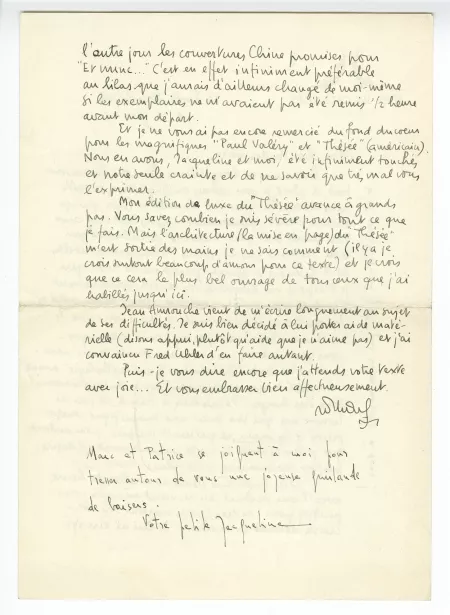 l'autre jour les couvertures Chine promises pour
"Et nunc..." C'est en effet infiniment préférable
au lilas que j'aurais d'ailleurs changé de moi-même
si les exemplaires ne m'avaient pas été remis 1/2 heure
avant mon départ.
Et je ne vous ai pas encore remercié du fond du cœur
pour les magnifiques "Paul Valéry" et "Thésée" (américain).
Nous en avons, Jacqueline et moi, été infiniment touchés
et notre seule crainte et de ne savoir que très mal vous
l'exprimer.
Mon édition de luxe du "Thésée" avance à grands
pas. Vous savez combien je suis sévère pour tout ce que
je fais. Mais l'architecture (la mise en page) du "Thésée"
m'est sortie des mains je ne sais comment (il y a je
crois surtout beaucoup d'amour pour ce texte) et je crois
que ce sera le plus bel ouvrage de tous ceux que j'ai
habillés jusqu'ici.
Jean Amrouche vient de m'écrire longuement au sujet
de ses difficultés. Je suis bien décidé à lui porter aide maté-
rielle (disons appui, plutôt qu'aide que je n'aime pas) et j'ai
convaincu Fred Uhler d'en faire autant.
Puis-je vous dire encore que j'attends votre texte
avec joie... Et vous embrasser bien affectueusement.
Marc et Patrice se joignent à moi pour
tresser autour de vous une joyeuse guirlande
de baisers.
Votre petite Jacqueline